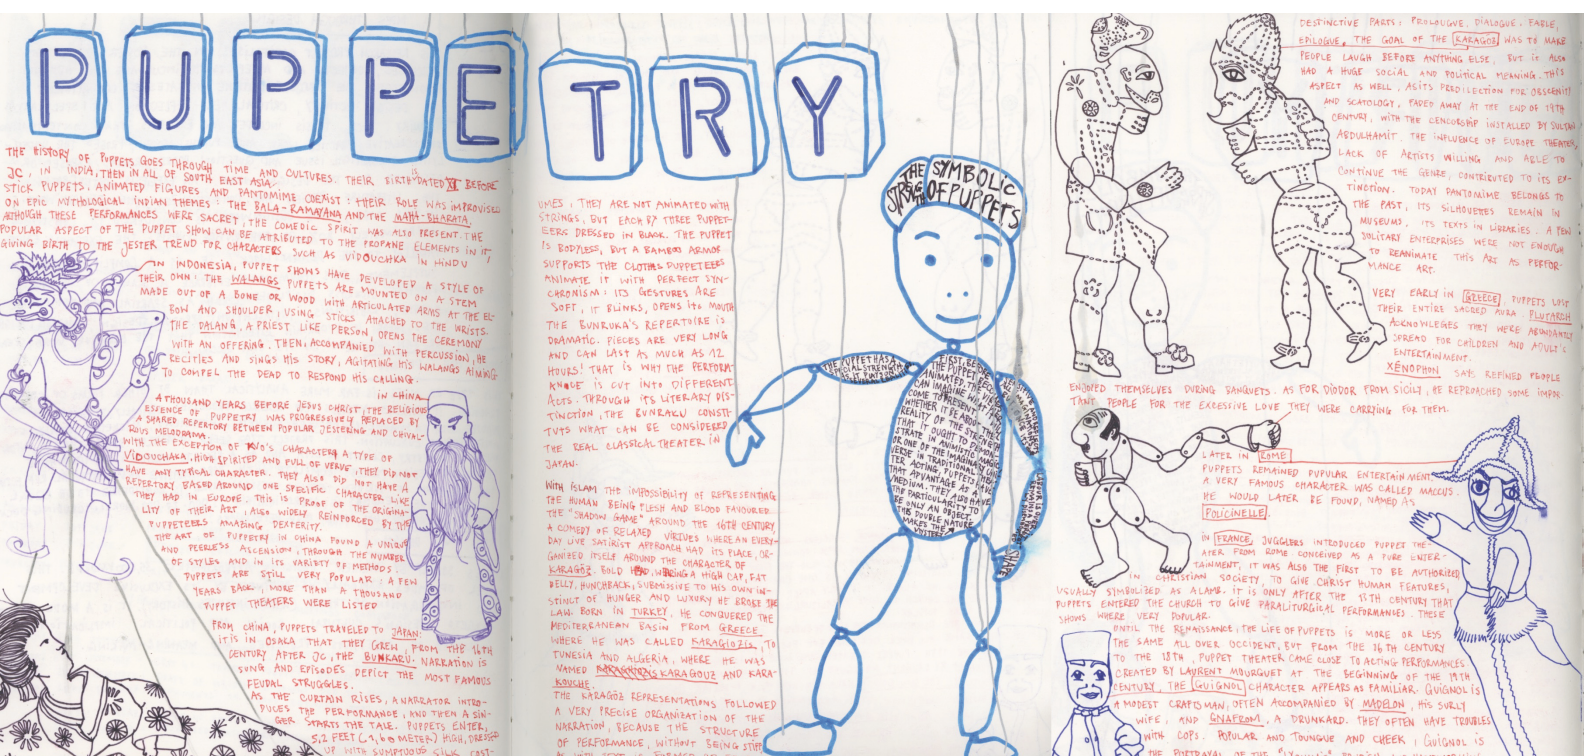 PUPPETRY
THE HISTORY OF PUPPETS GOES THROUGH TIME AND CULTURES. THEIR BIRTH IS DATED XI BEFORE
JC, IN INDIA, THEN IN ALL OF SOUTH EAST ASIA.
STICK PUPPETS, ANIMATED FIGURES AND PANTOMIME COEXIST: THEIR ROLE WAS IMPROVISED
ON EPIC MYTHOLOGICAL INDIAN THEMES: THE BALA-RAMAYANA AND THE MAHA-BHARATA.
ALTHOUGH THESE PERFORMANCES WERE SACRET, THE COMEDIC SPIRIT WAS ALSO PRESENT. THE
POPULAR ASPECT OF THE PUPPET SHOW CAN BE ATTRIBUTED TO THE PROFANE ELEMENTS IN IT,
GIVING BIRTH TO THE JESTER TREND FOR CHARACTERS SUCH AS VIDOUCHKA IN HINDU
IN INDONESIA, PUPPET SHOWS HAVE DEVELOPED A STYLE OF
THEIR OWN: THE WALANGS PUPPETS ARE MOUNTED ON A STEM
MADE OUT OF A BONE OR WOOD WITH ARTICULATED ARMS AT THE EL-
BOW AND SHOULDER, USING STICKS ATTACHED TO THE WRISTS.
THE DALANG, A PRIEST LIKE PERSON, OPENS THE CEREMONY
WITH AN OFFERING. THEN, ACCOMPANIED WITH PERCUSSION, HE
RECITIES AND SINGS HIS STORY, AGITATING HIS WALANGS AIMING
TO COMPEL THE DEAD TO RESPOND HIS CALLING.
IN CHINA
A THOUSAND YEARS BEFORE JESUS CHRIST, THE RELIGIOUS
ESSENCE OF PUPPETRY WAS PROGRESSIVELY REPLACED BY
A SHARED REPERTORY BETWEEN POPULAR JESTERING AND CHIVAL-
ROUS MELODRAMA.
WITH THE EXCEPTION OF KUO'S CHARACTER, A TYPE OF
VIDOUCHAKA, HIGH SPIRITED AND FULL OF VERVE, THEY DID NOT
HAVE ANY TYPICAL CHARACTER. THEY ALSO DID NOT HAVE A
REPERTORY BASED AROUND ONE SPECIFIC CHARACTER LIKE
THEY HAD IN EUROPE. THIS IS PROOF OF THE ORIGINA-
LITY OF THEIR ART, ALSO WIDELY REINFORCED BY THE
PUPPETEERS AMAZING DEXTERITY.
THE ART OF PUPPETRY IN CHINA FOUND A UNIQUE
AND PEERLESS ASCENSION, THROUGH THE NUMBER
OF STYLES AND IN ITS VARIETY OF METHODS.
PUPPETS ARE STILL VERY POPULAR: A FEW
YEARS BACK, MORE THAN A THOUSAND
PUPPET THEATERS WERE LISTED
FROM CHINA, PUPPETS TRAVELED TO JAPAN:
IT IS IN OSAKA THAT THEY GREW, FROM THE 16TH
CENTURY AFTER JC, THE BUNKARU. NARRATION IS
SONG AND EPISODES DEPICT THE MOST FAMOUS
FEUDAL STRUGGLES.
AS THE CURTAIN RISES, A NARRATOR INTRO-
DUCES THE PERFORMANCE, AND THEN A SIN-
GER STARTS THE TALE. PUPPETS ENTER,
5.2 FEET (1,60 METER) HIGH, DRESSED
UP WITH SUMPTUOUS SILK COST-
UMES, THEY ARE NOT ANIMATED WITH
STRINGS, BUT EACH BY THREE PUPPET-
EERS DRESSED IN BLACK. THE PUPPET
IS BODYLESS, BUT A BAMBOO ARMOR
SUPPORTS THE CLOTHES PUPPETEERS
ANIMATE IT WITH PERFECT SYN-
CHRONISM: ITS GESTURES ARE
SOFT, IT BLINKS, OPENS ITS MOUTH
THE BUNRUKA'S REPERTOIRE IS
DRAMATIC. PIECES ARE VERY LONG
AND CAN LAST AS MUCH AS 12
HOURS! THAT IS WHY THE PERFORM
ANCE IS CUT INTO DIFFERENT
ACTS. THROUGH ITS LITERARY DIS-
TINCTION, THE BUNRAKU CONSTI-
TUTS WHAT CAN BE CONSIDERED
THE REAL CLASSICAL THEATER IN
JAPAN.
WITH ISLAM THE IMPOSSIBILITY OF REPRESENTING
THE HUMAN BEING FLESH AND BLOOD FAVOURED
THE "SHADOW GAME" AROUND THE 16TH CENTURY
A COMEDY OF RELAXED VIRTUES WHERE AN EVERY-
DAY LIVE SATIRIST APPROACH HAD ITS PLACE, OR-
GANIZED ITSELF AROUND THE CHARACTER OF
KARAGÖZ. BOLD HEAD, WEARING A HIGH CAP, FAT
BELLY, HUNCHBACK, SUBMISSIVE TO HIS OWN IN-
STINCT OF HUNGER AND LUXURY HE BROKE THE
LAW. BORN IN TURKEY, HE CONQUERED THE
MEDITERRANEAN BASIN FROM GREECE
WHERE HE WAS CALLED KARAGIOZIS, TO
TUNESIA AND ALGERIA, WHERE HE WAS
NAMED KARAGOUZ AND KARA-
KOUCHE.
THE KARAGÖZ REPRESENTATIONS FOLLOWED
A VERY PRECISE ORGANIZATION OF THE
NARRATION, BECAUSE THE STRUCTURE
OF PERFORMANCE, WITHOUT BEING STIFF
THE SYMBOLIC
STRENGTH OF PUPPETS
THE PUPPET HAS A
FIRST, BEFORE
THE PUPPET BECOMES
ANIMATED, THEY
CAN IMAGINE WHAT WILL
COME TO PRESENT
REALITY OF THE STRENGTH
THAT IT OUGHT TO DEMON-
STRATE IN ANIMISTIC MAGIC
OR ONE OF THE IMAGINARY
VERSE IN TRADITIONAL
TER ACTING, PUPPETS HAVE
THAT ADVANTAGE AS A
MEDIUM. THEY ALSO HAVE
THE PARTICULARITY TO
BE ONLY AN OBJECT.
THIS DOUBLE NATURE
MAKES THE
MYSTERY
DESTINCTIVE PARTS: PROLOUGUE, DIALOGUE, FABLE,
EPILOGUE. THE GOAL OF THE KARAGÖZ WAS TO MAKE
PEOPLE LAUGH BEFORE ANYTHING ELSE, BUT IT ALSO
HAD A HUGE SOCIAL AND POLITICAL MEANING. THIS
ASPECT AS WELL, AS ITS PREDILECTION FOR OBSCENITY
AND SCATOLOGY, FADED AWAY AT THE END OF 19TH
CENTURY, WITH THE CENCORSHIP INSTALLED BY SULTAN
ABDULHAMIT. THE INFLUENCE OF EUROPE THEATER,
LACK OF ARTISTS WILLING AND ABLE TO
CONTINUE THE GENRE, CONTRIBUTED TO ITS EX-
TINCTION. TODAY PANTOMIME BELONGS TO
THE PAST, ITS SILHOUETTES REMAIN IN
MUSEUMS. ITS TEXTS IN LIBRARIES. A FEW
SOLITARY ENTERPRISES WERE NOT ENOUGH
TO REANIMATE THIS ART AS PERFOR-
MANCE ART.
VERY EARLY IN GREECE, PUPPETS LOST
THEIR ENTIRE SACRED AURA. PLUTARCH
ACKNOWLEGES THEY WERE ABUNDANTLY
SPREAD FOR CHILDREN AND ADULT'S
ENTERTAINMENT.
XÉNOPHON SAYS REFINED PEOPLE
ENJOIED THEMSELVES DURING BANQUETS. AS FOR DIODOR FROM SICILY, HE REPROACHED SOME IMPOR-
TANT PEOPLE FOR THE EXCESSIVE LOVE THEY WERE CARRYING FOR THEM.
LATER IN ROME
PUPPETS REMAINED PUPULAR ENTERTAINMENT.
A VERY FAMOUS CHARACTER WAS CALLED MACCUS.
HE WOULD LATER BE FOUND, NAMED AS
POLICINELLE.
IN FRANCE, JUGGLERS INTRODUCED PUPPET THE-
ATER FROM ROME CONCEIVED AS A PURE ENTER-
TAINMENT, IT WAS ALSO THE FIRST TO BE AUTHORIZED
IN CHRISTIAN SOCIETY, TO GIVE CHRIST HUMAN FEATURES,
USUALLY SYMBOLIZED AS A LAMB. IT IS ONLY AFTER THE 13TH CENTURY THAT
PUPPETS ENTERED THE CHURCH TO GIVE PARALITURGICAL PERFORMANCES. THESE
SHOWS WHERE VERY POPULAR.
UNTIL THE RENAISSANCE, THE LIFE OF PUPPETS IS MORE OR LESS
THE SAME ALL OVER OCCIDENT, BUT FROM THE 16TH CENTURY
TO THE 18TH, PUPPET THEATER CAME CLOSE TO ACTING PERFORMANCES.
CREATED BY LAURENT MOURGUET AT THE BEGINNING OF THE 19TH
CENTURY, THE GUIGNOL CHARACTER APPEARS AS FAMILIAR. GUIGNOL IS
A MODEST CRAFTSMAN, OFTEN ACCOMPANIED BY MADELON, HIS SURLY
WIFE, AND GNAFROM, A DRUNKARD. THEY OFTEN HAVE TROUBLES
WITH COPS. POPULAR AND TOUNGUE AND CHEEK, GUIGNOL IS